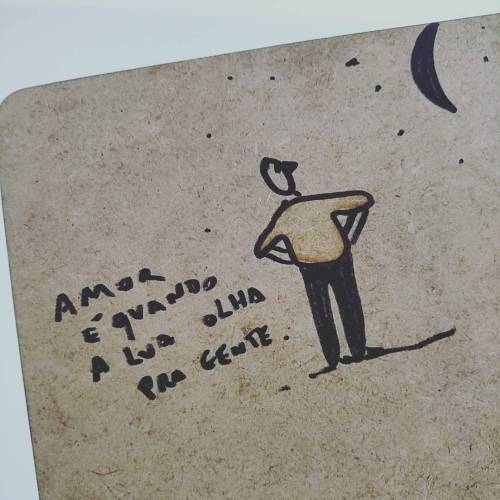 AMOR
É QUANDO
A LUA OLHA
PRA GENTE.